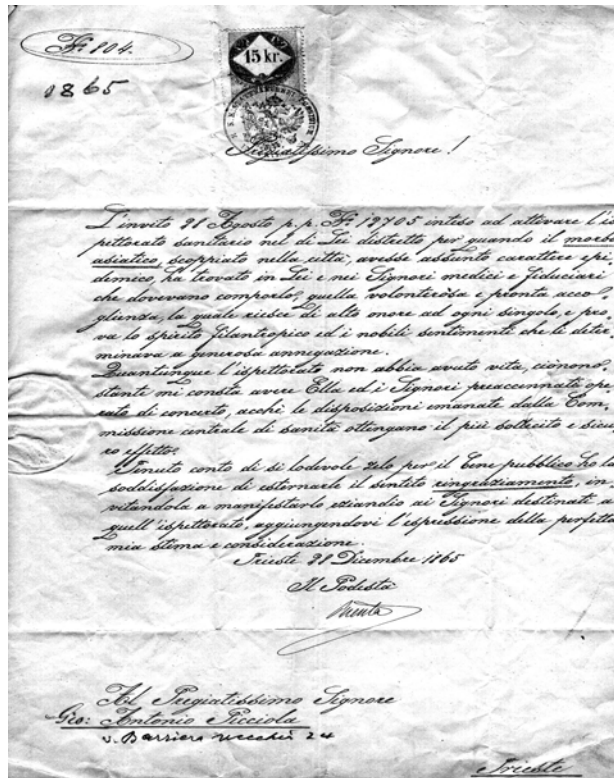 № 804.
1865
15 kr.
Pregiatissimo Signore!
L'invito 28 Agosto p. p. № 12705 inteso ad attivare l'is
pettorato sanitario nel di Lei distretto per quando il morbo
asiatico, scoppiato nella città, avesse assunto carattere epi,
demico, ha trovato in Lei e nei Signori medici e fiduciari
che dovevano comporlo, quella volonterosa e pronta acco,
glienza, la quale riesce di alto onore ad ogni singolo, e pro,
va lo spirito filantropico ed i nobili sentimenti che li deter,
minava a generosa annegazione.
Quantunque l'ispettorato non abbia avuto vita, ciònono,
stante mi consta avere Ella ed i Signori preaccennati ope,
rato di concerto, acchè le disposizioni emanate dalla Com,
missione centrale di sanità ottengano il più sollecito e sicu,
ro effetto.
Tenuto conto di sì lodevole zelo per il bene pubblico ho la
soddisfazione di esternarle il sentito ringraziamento, in,
vitandola a manifestarlo eziandio ai Signori destinati a
quell'ispettorato, aggiungendovi l'espressione della perfetta
mia stima e considerazione.
Trieste 28 Dicembre 1865
Il Podestà
Al Pregiatissimo Signore
Gio: Antonio Picciola
v. Barriera vecchia 24
Trieste